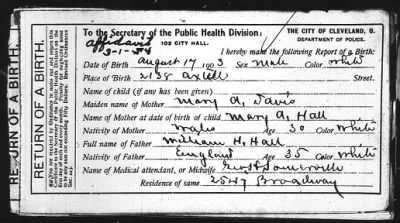 To the Secretary of the Public Health Division:
THE CITY OF CLEVELAND, O.
DEPARTMENT OF POLICE.
102 CITY HALL.
affidavit
3-1-54
I hereby make the following Report of a Birth:
Date of Birth August 17 1903 Sex Male Color White
Place of Birth 2138 Axtell Street.
Name of child (if any has been given)
Maiden name of Mother Mary A. Davis
Name of Mother at date of birth of child Mary A. Hall
Nativity of Mother Wales Age 30 Color White
Full name of Father William H. Hall
Nativity of Father England Age 35 Color White
Name of Medical attendant, or Midwife Geo H Somerville
Residence of same 2547 Broadway
RETURN OF A BIRTH.
RETURN OF A BIRTH.